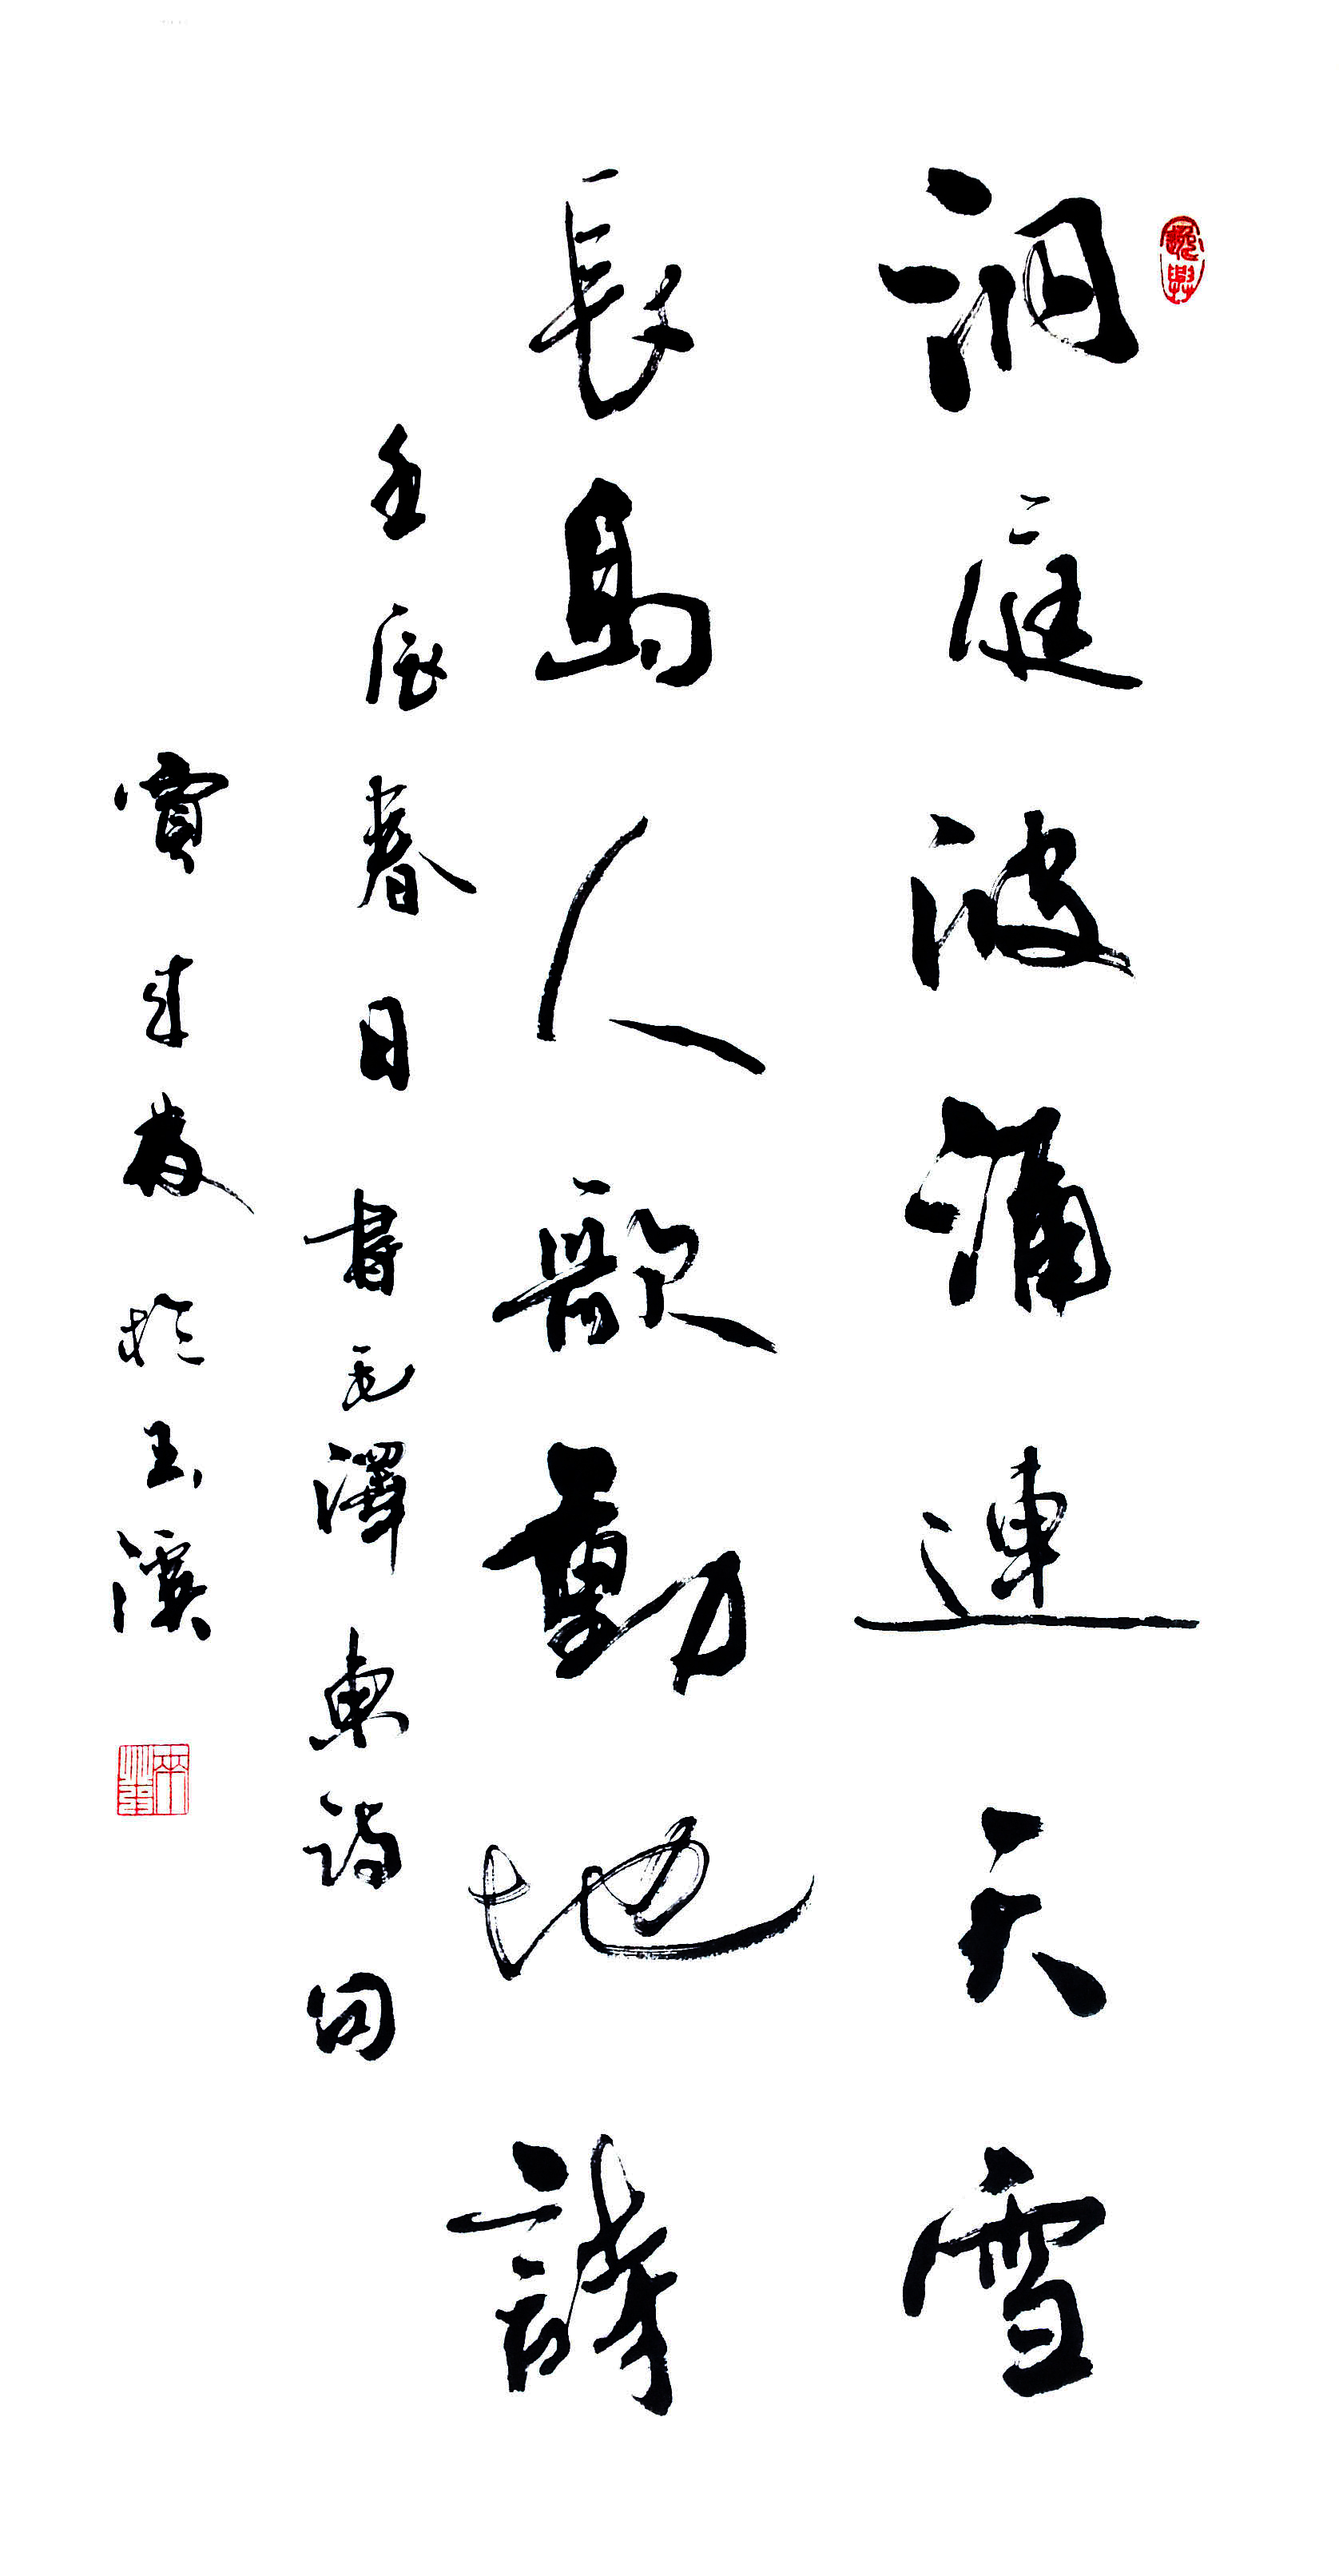 洞庭波涌連天雪
長島人歌動地詩
壬辰春日書毛澤東詩句
於玉溪
逸興